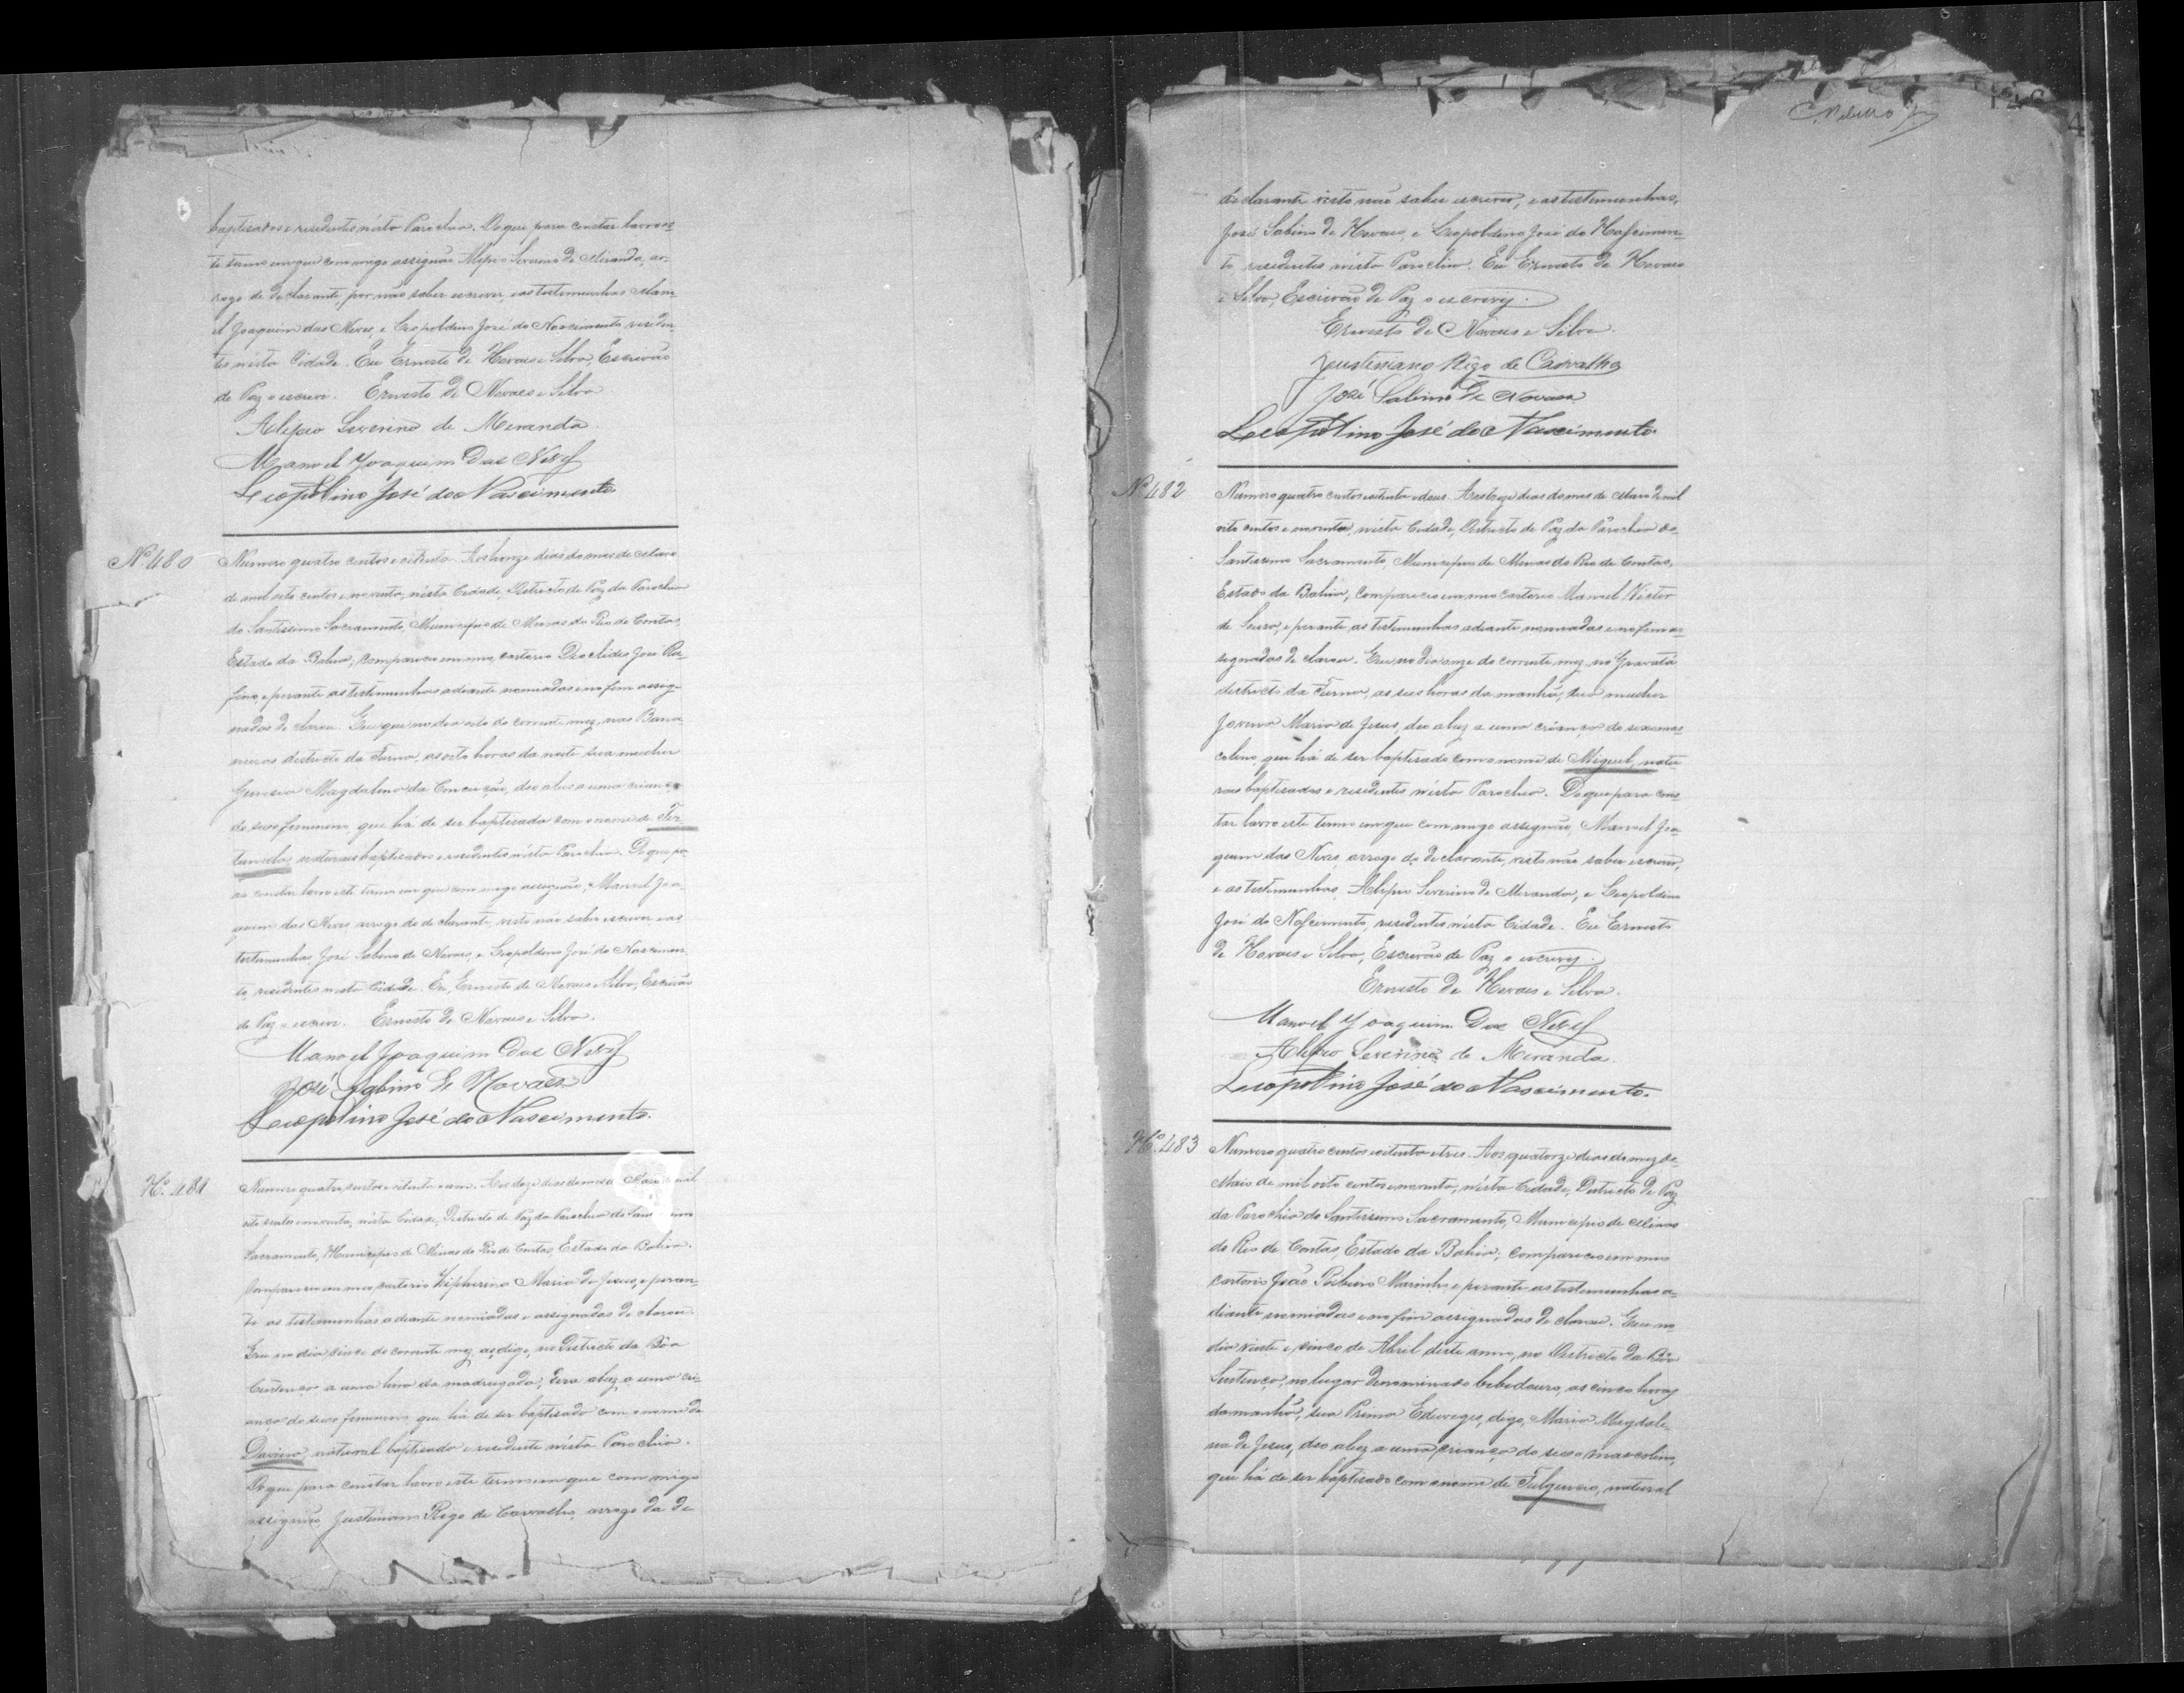 baptisados e residentes nésta Parochia. Do que para constar lavro es-
te termo em que com migo assignão Alipio Severino de Miranda, ar-
rogo de declarante, por não saber escrever, e as testemunhas Mano-
el Joaquim das Neves, e Leopoldino José do Nascimento, residen-
tes nésta Cidade. Eu Ernesto de Novaes e Silva, Escrivão
de Paz o escrevi. Ernesto de Novaes e Silva
Alipio Severino de Miranda
Manoel Joaquim das Neves
Leopoldino José do Nascimento
Nº 480
Numero quatro centos e oitenta. Aos honze dias do mes de Maio
de mil oito centos e noventa, nésta Cidade, Districto de Paz da Parochia
do Santissimo Sacramento, Municipio de Minas do Rio de Contas,
Estado da Bahia, compareceo em meu cartorio Deoclides José Ru-
fino, e perante as testemunhas adiante nomiadas e no fim assig-
nadas declarou. Que no dia oito do corrente mez, nas Barra
districto da Furna, as oito horas da noite sua mulher
Magdalena da Conceição, deo a luz a uma criança
do sexo feminino, que há de ser baptisada com o nome de For-
tunata, naturais baptisados e residentes nésta Parochia. Do que pa-
ra constar lavro este termo em que com migo assignão, Manoel Joa-
quim das Neves, arrogo do declarante, visto não saber escrever, e as
testemunhas, José Sabino de Novaes, e Leopoldino José do Nascimen-
to, residentes nesta Cidade. Eu, Ernesto de Novaes e Silva, Escrivão
de Paz o escrevi. Ernesto de Novaes e Silva.
Manoel Joaquim das Neves
José Sabino de Novaes
Leopoldino José do Nascimento.
Nº 481
Numero quatro centos e oitenta e um. Aos doze dias do mes de Maio de mil
oito centos e noventa, nésta Cidade, Districto de Paz da Parochia do Santissimo
Sacramento, Municipio de Minas do Rio de Contas, Estado da Bahia.
Compareceo em meu cartorio Zipherina Maria de Jesus, e peran-
te as testemunhas adiante nomiadas e assignadas declarou.
Que no dia do corrente mez, as, digo, no Districto da Bôa
Sentença a uma hora da madrugada, dera a luz a uma cri-
ança do sexo feminino, que há de ser baptisado com o nome de
Davina, natural baptisada e residente nésta Parochia.
Do que para constar lavro este termo em que com migo
assignão, Justiniano Rego de Carvalho, arrogo da de
declarante visto não saber escrever, e as testemunhas,
José Sabino de Novaes, e Leopoldino José do Nascimen-
to, residentes nésta Parochia. Eu Ernesto de Novaes
e Silva, Escrivão de Paz o escrevy.
Ernesto de Novaes e Silva.
Justiniano Rêgo de Carvalho
José Sabino de Novaes
Leopoldino José do Nascimento.
Nº 482
Numero quatro centos e oitenta e dous. Aos treze dias do mes de Maio de mil
oito centos e noventa, nésta Cidade, Districto de Paz da Parochia do
Santissimo Sacramento, Municipio de Minas do Rio de Contas,
Estado da Bahia, compareceo em meu cartorio Manoel Victor
de Souza, e perante as testemunhas adiante nomiadas e no fim as-
signadas declarou. Que no dia onze do corrente mez, no Gravatá
districto da Furna, as seis horas da manhã, sua mulher
Jovina Maria de Jesus, deo a luz a uma criança do sexo mas-
colino, que há de ser baptisado com o nome de Miguel, natu-
raes baptisados e residentes nésta Parochia. Do que para cons-
tar lavro este termo em que com migo assignão, Manoel Joa-
quim das Neves, arrogo do declarante, visto não saber escrever,
e as testemunhas, Alipio Severino de Miranda, e Leopoldino
José do Nascimento, residentes nésta Cidade. Eu Ernesto
de Novaes e Silva, Escrivão de Paz o escrevy.
Ernesto de Novaes e Silva.
Manoel Joaquim das Neves
Alipio Severino de Miranda.
Leopoldino José do Nascimento.
Nº 483
Numero quatro centos e oitenta e tres. Aos quatorze dias do mez de
Maio de mil oito centos e noventa, nésta Cidade, Districto de Paz
da Parochia do Santissimo Sacramento, Municipio de Minas
do Rio de Contas, Estado da Bahia; compareceo em meu
cartorio João Marinho e perante as testemunhas a-
diante nomiadas e no fim assignadas declarou. Que no
dia vinte e cinco de Abril deste anno, no Districto da Bôa
Sentença, no lugar denominado bebedouro, as cinco horas
da manhã, sua Prima Eduviges, digo, Maria Magdale-
na de Jesus, deo a luz a uma criança do sexo mascolino,
que há de ser baptisado com o nome de Fulgencio, natural